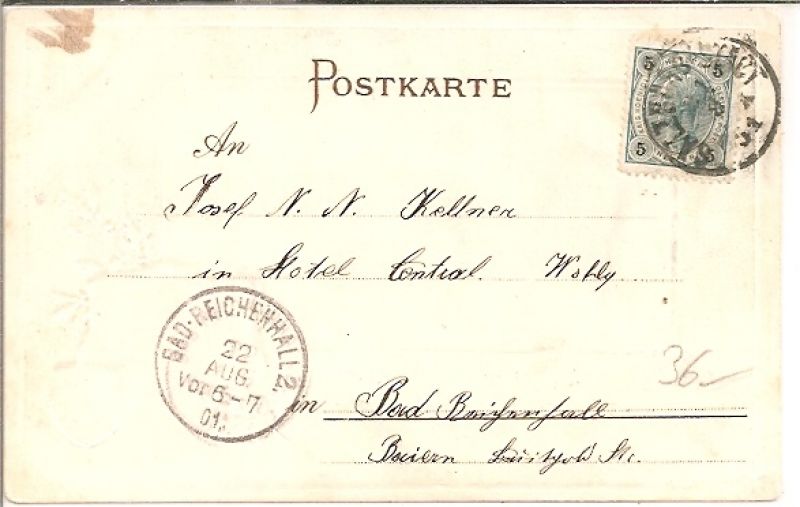 POSTKARTE
5 5
5 5
An
Josef N. N. Kellner
in Hotel Central Wohlg
BAD-REICHENHALL 2.
22
AUG.
Vor 6-7
01.
36-
in Bad Reichenhall
Baiern Luitpold Str.